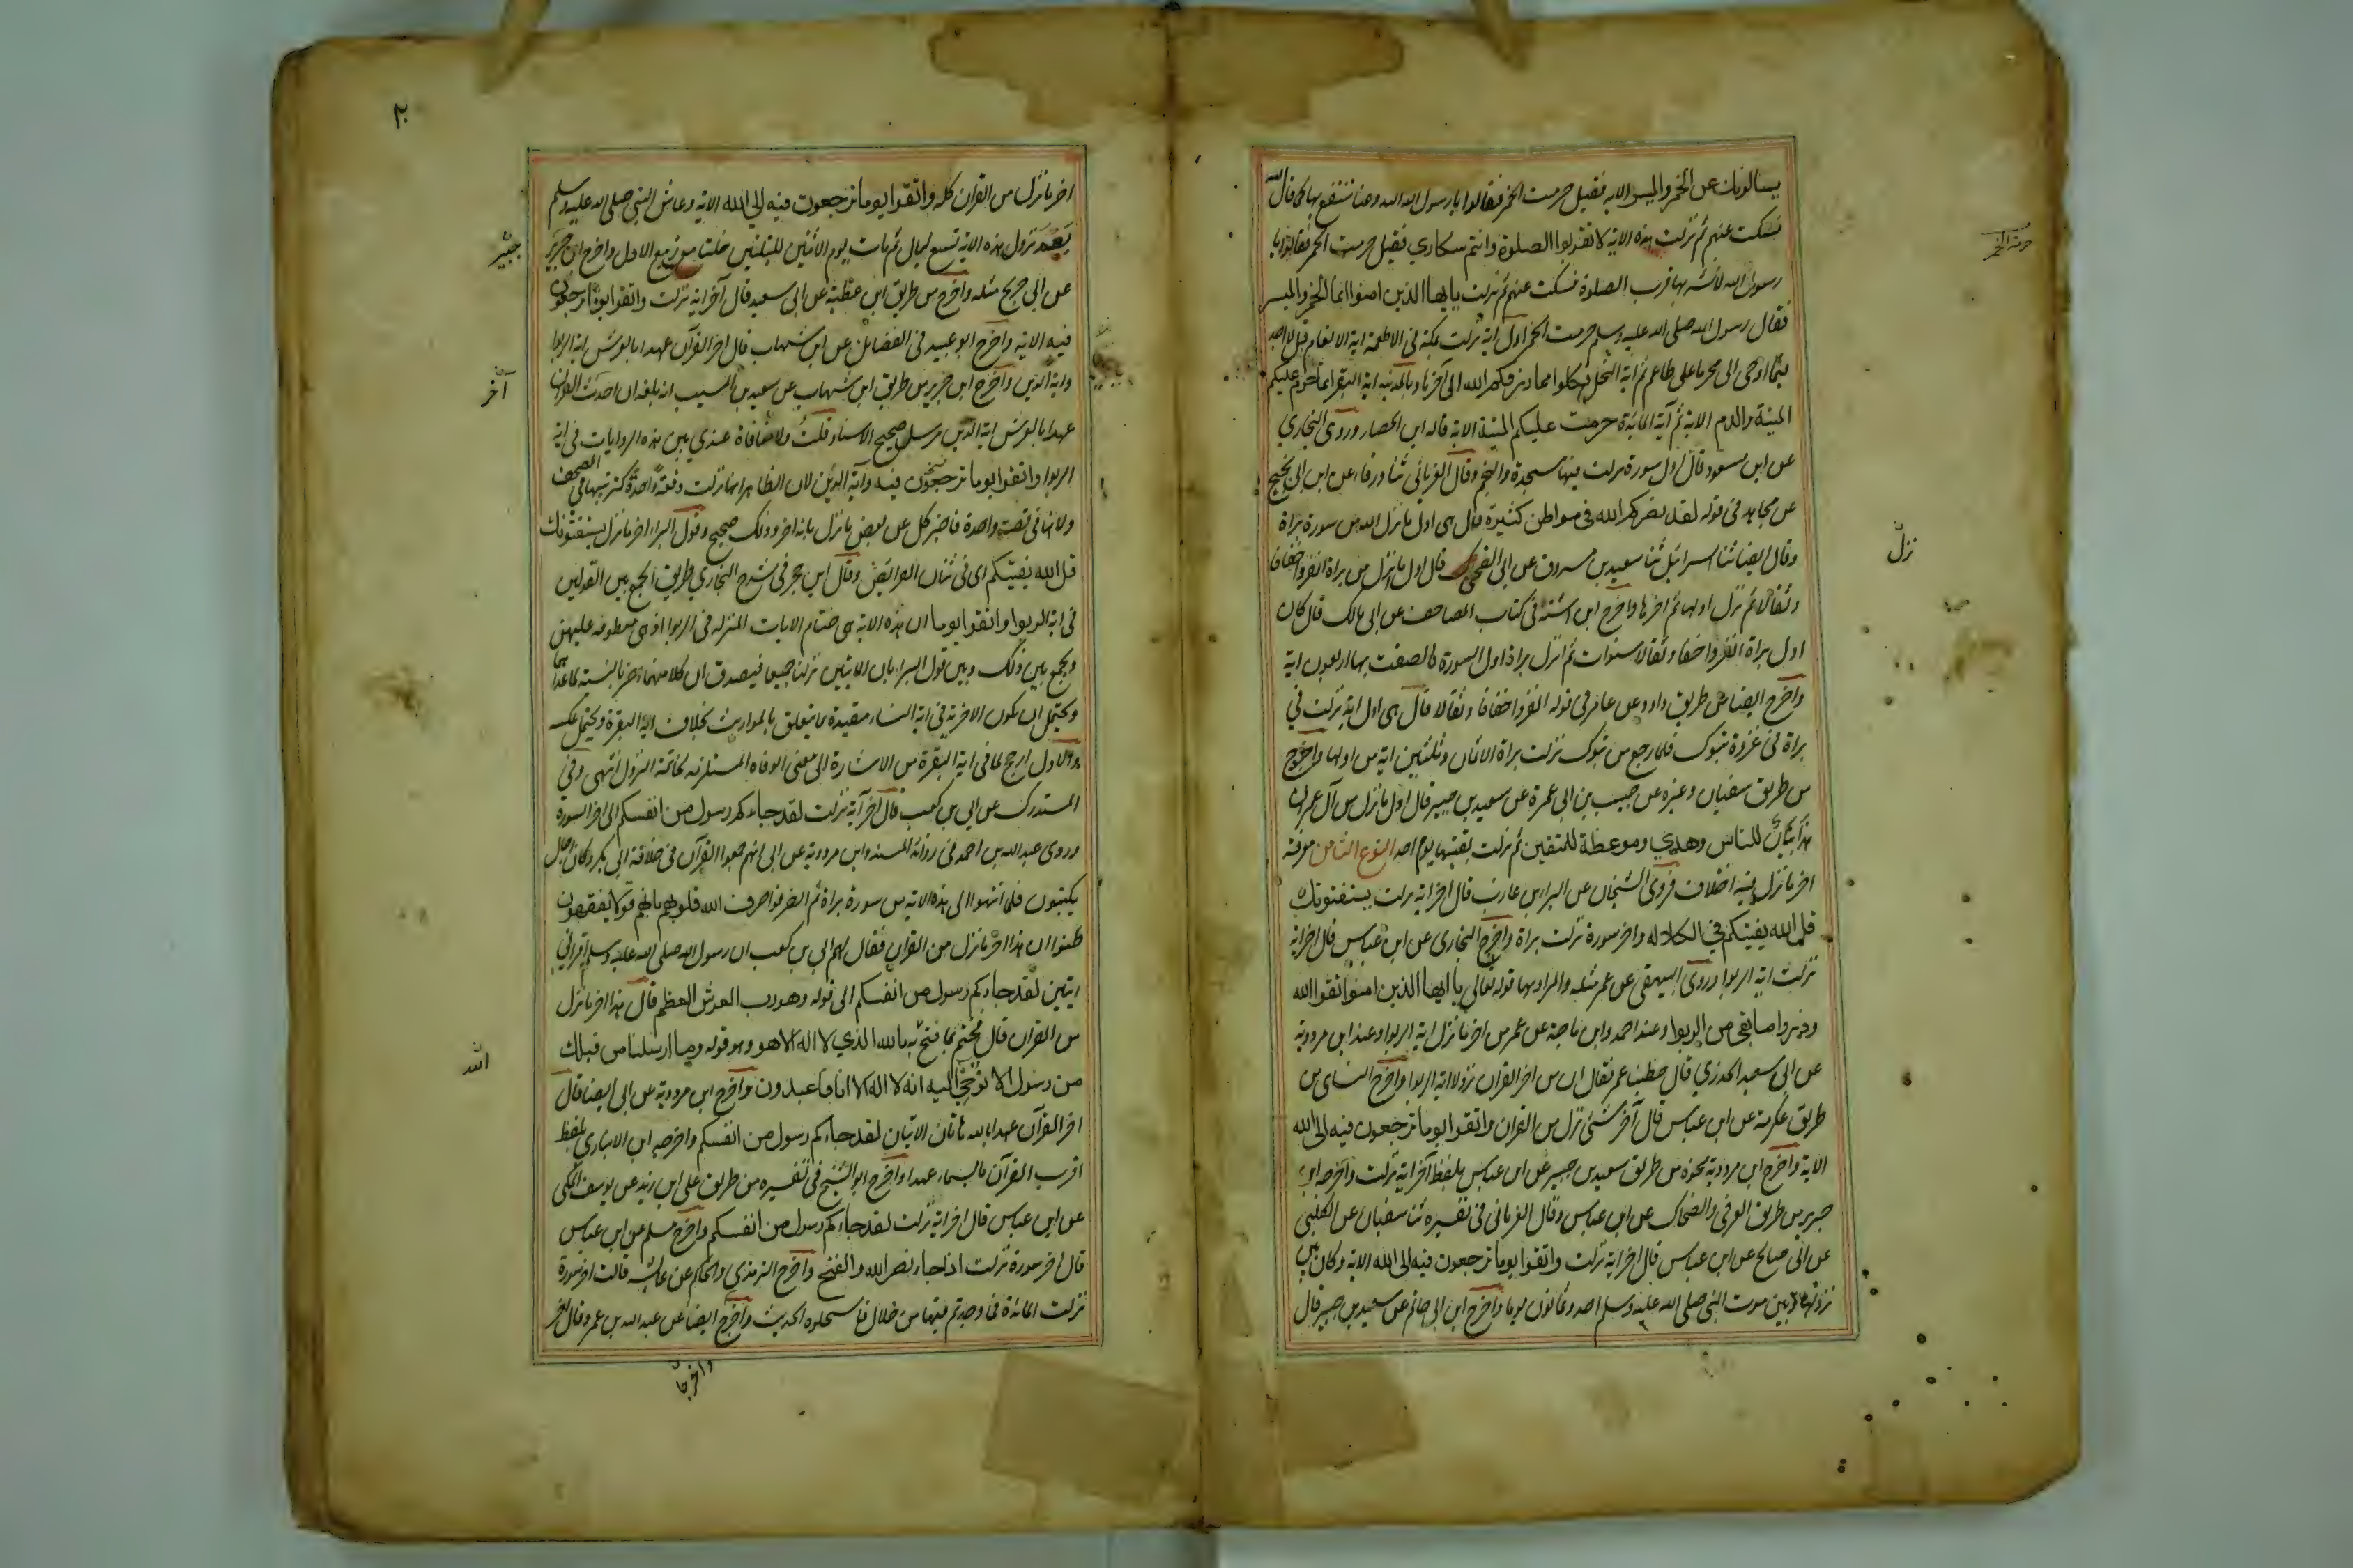 يسالونك عن الخمر والميسر الايه فقيل حرمت الخمر فقالوا يا رسول الله دعنا ننتفع بها كما قال الله
فسكت عنهم ثم نزلت هذه الاية لا تقربوا الصلوة وانتم سكاري فقيل حرمت الخمر فقالوا يا
رسول الله لا نشربها قرب الصلوة فسكت عنهم ثم نزلت يا يها الذين امنوا انما الخمر والميسر
فقال رسول الله صلى الله عليه وسلم حرمت الخمر اول اية نزلت بمكة فى الاطعمة اية الانعام قل لا اجد
فيما اوحى الى محرما على طاعم ثم اية النحل فكلوا مما رزقكم الله الى آخرها وبالمدينه اية البقر انما حرم عليكم
الميتة والدم الاية ثم آية المائدة حرمت عليكم الميتة الاية قاله ابن الحصار وروى البخاري
عن ابن مسعود قال اول سورة نزلت فيها سجدة والنجم وقال الفريابى ثنا ورقاء عن ابن ابى نجيح
عن مجاهد فى قوله لقد نصركم الله فى مواطن كثيرة قال هى اول ما نزل الله من سورة براة
وقال ايضا ثنا اسرائيل ثنا سعيد بن مسروق عن ابى الضحى قال اول ما نزل من براة انفروا خفافا
وثقالا ثم نزل اولها ثم اخرها واخرج ابن اشته فى كتاب المصاحف عن ابى مالك قال كان
اول براة انفروا خفافا وثقالا سنوات ثم انزل براة اول السورة فالصفت بها اربعون اية
واخرج ايضا من طريق داود عن عامر فى قوله انفروا خفافا وثقالا قال هى اول اية نزلت في
براة فى غزوة تبوك فلما رجع من تبوك نزلت براة الا ثمان وثلثين اية من اولها واخرج
من طريق سفيان وغيره عن حبيب بن ابى عمرة عن سعيد بن جبير قال اول ما نزل من آل عمران
هذا بيان للناس وهدي وموعظة للمتقين ثم نزلت بقيتها يوم احد النوع الثامن معرفة
اخر ما نزل فيه اختلاف فروى الشيخان عن البراء بن عازب قال اخر اية نزلت يستفتونك
قل الله يفتيكم في الكلاله واخر سورة نزلت براة واخرج البخارى عن ابن عباس قال اخر اية
نزلت اية الربوا وروى البيهقى عن عمر مثله والمراد بها قوله تعالي يا ايها الذين امنوا اتقوا الله
وذروا ما بقى من الربوا وعند احمد وابن ماجة عن عمر من اخر ما نزل اية الربوا وعند ابن مردوية
عن ابى سعيد الخدري قال خطبنا عمر فقال ان من اخر القران نزولا اية الربوا واخرج النساى من
طريق عكرمة عن ابن عباس قال آخر شئ نزل من القران واتقوا يوما ترجعون فيه الى الله
الاية واخرج ابن مردوية نحوه من طريق سعيد بن جبير عن ابن عباس بلفظ آخر اية نزلت واخرجه ابن
جرير من طريق العوفى والضحاك عن ابن عباس وقال الفريابى فى تفسيره ثنا سفيان عن الكلبى
عن ابى صالح عن ابن عباس قال اخر اية نزلت واتقوا يوما ترجعون فيه الى الله الاية وكان بين
نزولها وبين موت النبى صلى الله عليه وسلم احد وثمانون يوما واخرج ابن ابى حاتم عن سعيد بن جبير قال
حرمة الخمر
نزل
٢٠
اخر ما نزل من القران كله واتقوا يوما ترجعون فيه الى الله الاية وعاش النبى صلى الله عليه وسلم
بعد نزول هذه الاية تسع ليال ثم مات يوم الاثنين لليلتين خلتا من ربيع الاول واخرج ابن جرير
عن ابن جريج مثله واخرج من طريق ابن عطية عن ابى سعيد قال آخر اية نزلت واتقوا يوما ترجعون
فيه الاية واخرج ابو عبيد فى الفضائل عن ابن شهاب قال اخر القرآن عهدا بالعرش اية الربوا
واية الدين واخرج ابن جرير من طريق ابن شهاب عن سعيد بن المسيب انه بلغه ان احدث القران
عهدا بالعرش اية الدين مرسل صحيح الاسناد قلت ولا منافاة عندي بين هذه الروايات فى اية
الربوا واتقوا يوما ترجعون فيه وآية الدين لان الظاهر انها نزلت دفعة واحدة كترتيبها فى المصحف
ولانها فى قصة واحدة فاخبر كل عن بعض ما نزل بانه اخر وذلك صحيح وقول البرا اخر ما نزل يستفتونك
قل الله يفتيكم اى فى شان الفرائض وقال ابن حجر فى شرح البخاري طريق الجمع بين القولين
فى اية الربوا واتقوا يوما ان هذه الاية هى ختام الايات المنزله فى الربوا اذ هى معطوفه عليهن
ويجمع بين ذلك وبين قول البرا بان الايتين نزلتا جميعا فيصدق ان كلا منهما اخر بالنسبة لما عداهما
ويحتمل ان يكون الاخرية فى اية النساء مقيدة بما يتعلق بالمواريث بخلاف اية البقرة ويحتمل عكسه
والاول ارجح لما فى اية البقرة من الاشارة الى معنى الوفاه المستلزمه لخاتمة النزول انتهى وفى
المستدرك عن ابي بن كعب قال آخر آية نزلت لقد جاءكم رسول من انفسكم الى اخر السورة
وروى عبد الله بن احمد فى زوائد المسند وابن مردوية عن ابى انهم جمعوا القرآن فى خلافة ابى بكر وكان رجال
يكتبون فلما انتهوا الى هذه الاية من سورة براة ثم انصرفوا صرف الله قلوبهم بانهم قوم لا يفقهون
ظنوا ان هذا اخر ما نزل من القران فقال لهم ابى بن كعب ان رسول الله صلى الله عليه وسلم اقرانى
ايتين لقد جاءكم رسول من انفسكم الى قوله وهو رب العرش العظيم قال هذا اخر ما نزل
من القران قال فختم بما فتح به بالله الذي لا اله الا هو وهو قوله وما ارسلنا من قبلك
من رسول الا نوحي اليه انه لا اله الا انا فاعبدون واخرج ابن مردوية عن ابى ايضا قال
اخر القرآن عهدا بالله هاتان الايتان لقد جاءكم رسول من انفسكم واخرجه ابن الانبارى بلفظ
اقرب القرآن بالسماء عهدا واخرج ابو الشيخ فى تفسيره من طريق على ابن زيد عن يوسف المكى
عن ابن عباس قال اخر اية نزلت لقد جاءكم رسول من انفسكم واخرج مسلم عن ابن عباس
قال اخر سورة نزلت اذا جاء نصر الله والفتح واخرج الترمذي والحاكم عن عائشه قالت اخر سورة
نزلت المائدة فما وجدتم فيها من حلال فاستحلوه الحديث واخرج ايضا عن عبد الله بن عمرو قال اخر
جبير
آخر
الله